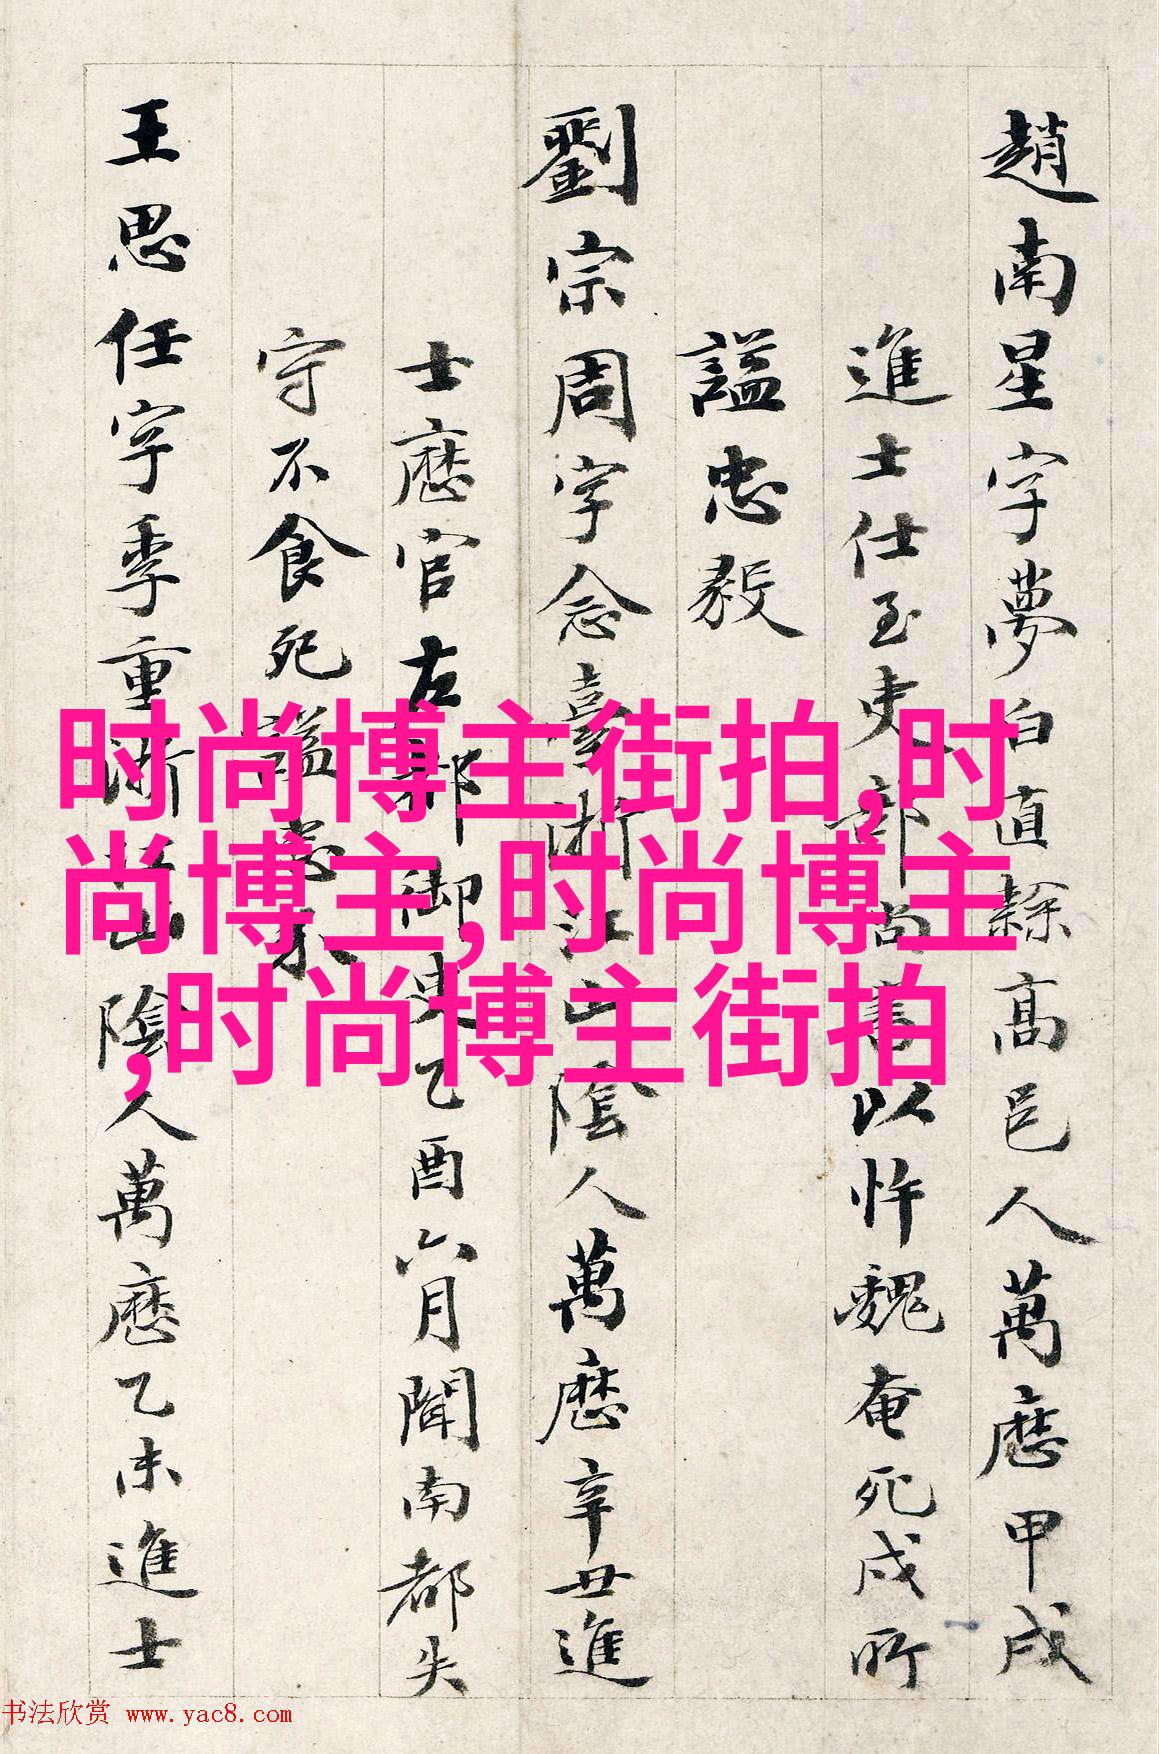 趙南星字夢白直隸高邑人萬曆甲戌
進士仕至吏部尚書以忤魏奄死戍所
謚忠毅
劉宗周字念臺浙江山陰人萬曆辛丑進
士歷官左都御史乙酉六月聞南都失
守不食死謚忠
王思任字季重浙江山陰人萬曆乙未進士
时尚博主街拍,时
尚博主,时尚博主
,时尚博主街拍
书法欣赏 www.yac8.com